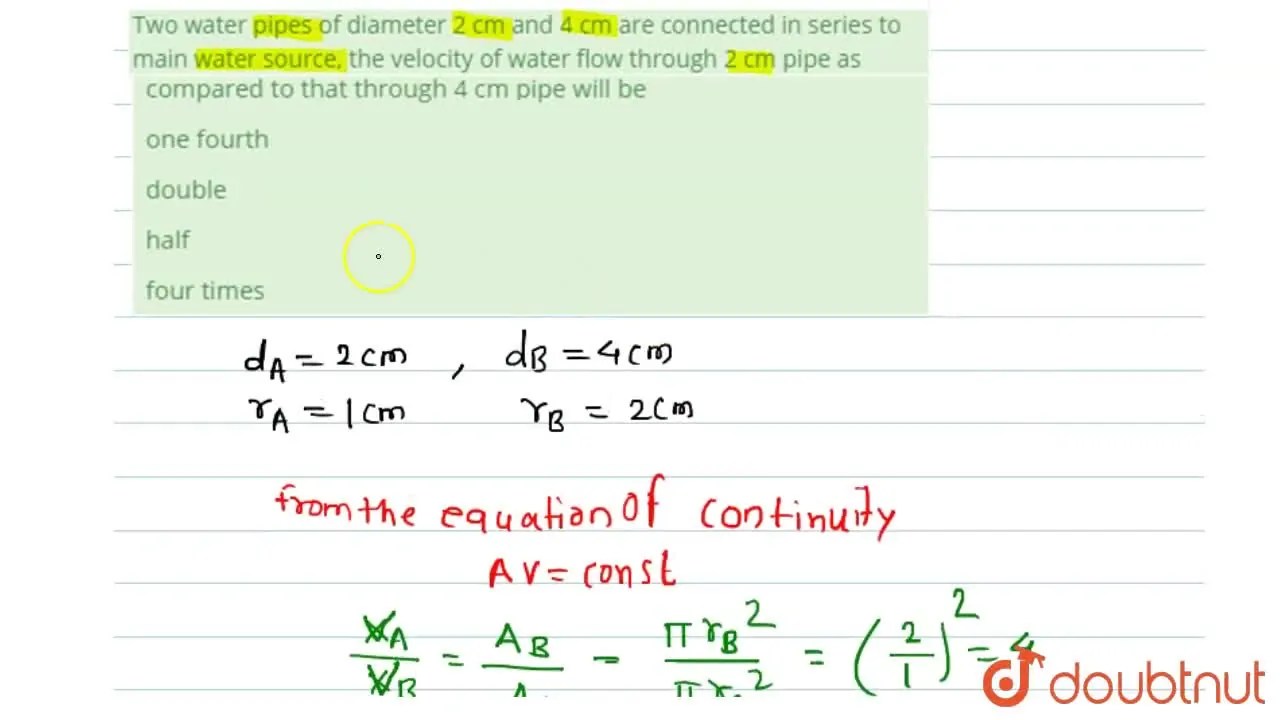 Two water pipes of diameter 2 cm and 4 cm are connected in series to
main water source, the velocity of water flow through 2 cm pipe as
compared to that through 4 cm pipe will be
one fourth
double
half
four times
dA = 2 cm , dB = 4 cm
rA = 1 cm rB = 2 cm
from the equation of continuity
AV = const
VA/VB = AB/A = πrB²/πr² = (2/1)² = 4
doubtnut